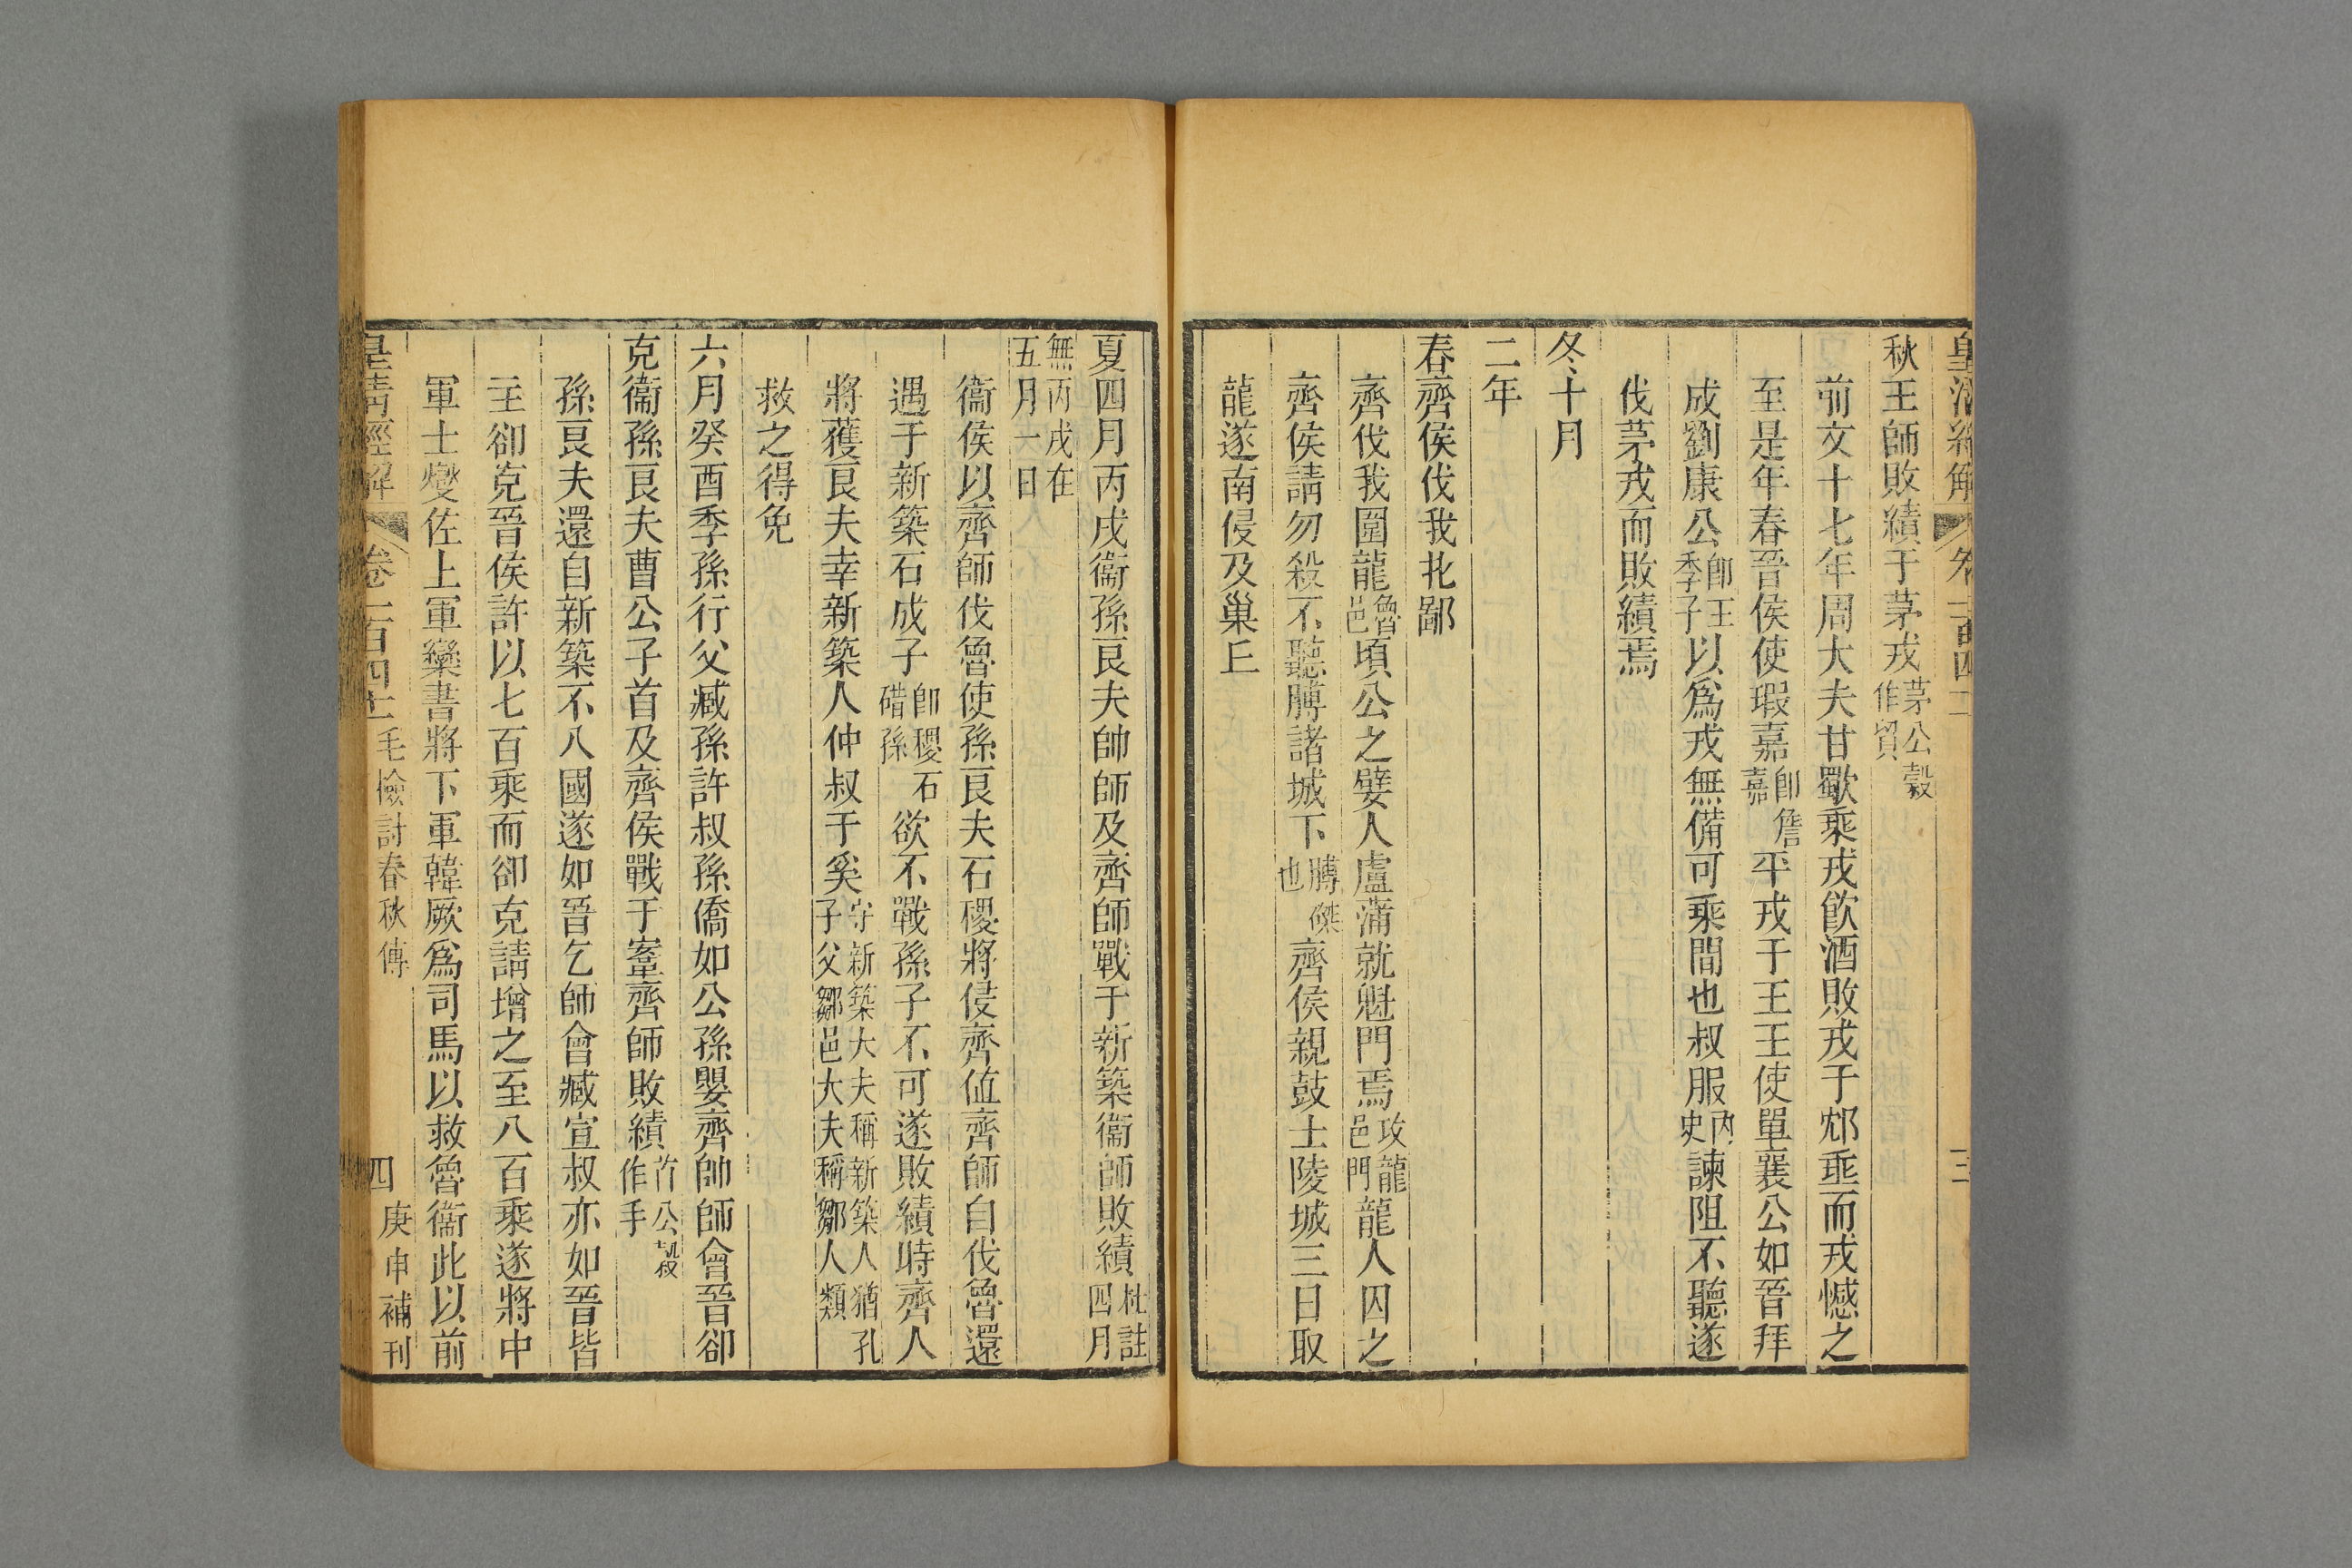 皇清經解
卷一百四十二
三
秋王師敗績于茅戎茅公穀作貿
前文十七年周大夫甘歜乘戎飲酒敗戎于邥乖而戎憾之
至是年春晉侯使瑕嘉卽詹嘉平戎于王王使單襄公如晉拜
成劉康公卽王季子以爲戎無備可乘間也叔服內史諫阻不聽遂
伐茅戎而敗績焉
冬十月
二年
春齊侯伐我北鄙
齊伐我圍龍魯邑頃公之嬖人盧蒲就魁門焉攻龍邑門龍人囚之
齊侯請勿殺不聽膊諸城下膊磔也齊侯親鼓士陵城三日取
龍遂南侵及巢丘
夏四月丙戌衞孫良夫帥師及齊師戰于新築衞師敗績杜註四月
無丙戌在五月一日
衞侯以齊師伐魯使孫良夫石稷將侵齊値齊師自伐魯還
遇于新築石成子卽稷石碏孫欲不戰孫子不可遂敗績時齊人
將獲良夫幸新築人仲叔于奚守新築大夫稱新築人猶孔子父鄒邑大夫稱鄒人類
救之得免
六月癸酉季孫行父臧孫許叔孫僑如公孫嬰齊帥師會晉卻
克衞孫良夫曹公子首及齊侯戰于鞌齊師敗績首公穀作手
孫良夫還自新築不入國遂如晉乞師會臧宣叔亦如晉皆
主卻克晉侯許以七百乘而卻克請增之至八百乘遂將中
軍士燮佐上軍欒書將下軍韓厥爲司馬以救魯衞此以前
皇清經解
卷一百四十二
毛檢討春秋傳
四
庚申補刊